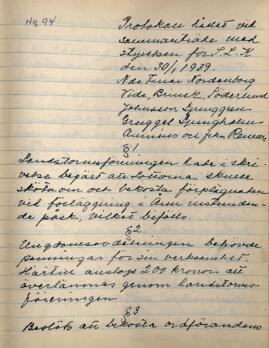 No 94
Protokoll hållet vid
sammanträde med
styrelsen för S.L.K
den 30/1 1939.
Nde Fruar Nordenborg
Vide, Brinck, Söderlund
Johnsson Ljunggren
Ljungholm
och frk.
§1
Landstormsföreningen hade i skri-
velse begärt att lottorna skulle
sköta om och bekosta förplägnaden
vid förläggning i Åhus instunden-
de påsk, vilket bifölls.
§2
Ungdomsavdelningen behövde
penningar för sin verksamhet.
Härtill anslogs 200 kronor att
överlämnas genom landstorms-
föreningen.
§3
Beslöts att bekosta ordförandens